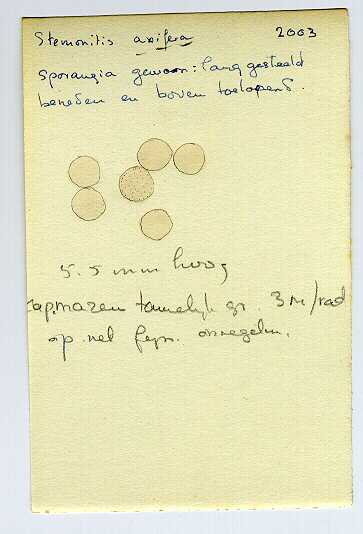 Stemonitis axifera 2003
Sporangia gewoon: lang gesteeld
beneden en boven toelopend.
5.5 mm hoog
cap.mazen tamelijk gr. 3 M/rad
op. net fijn. onregelm.